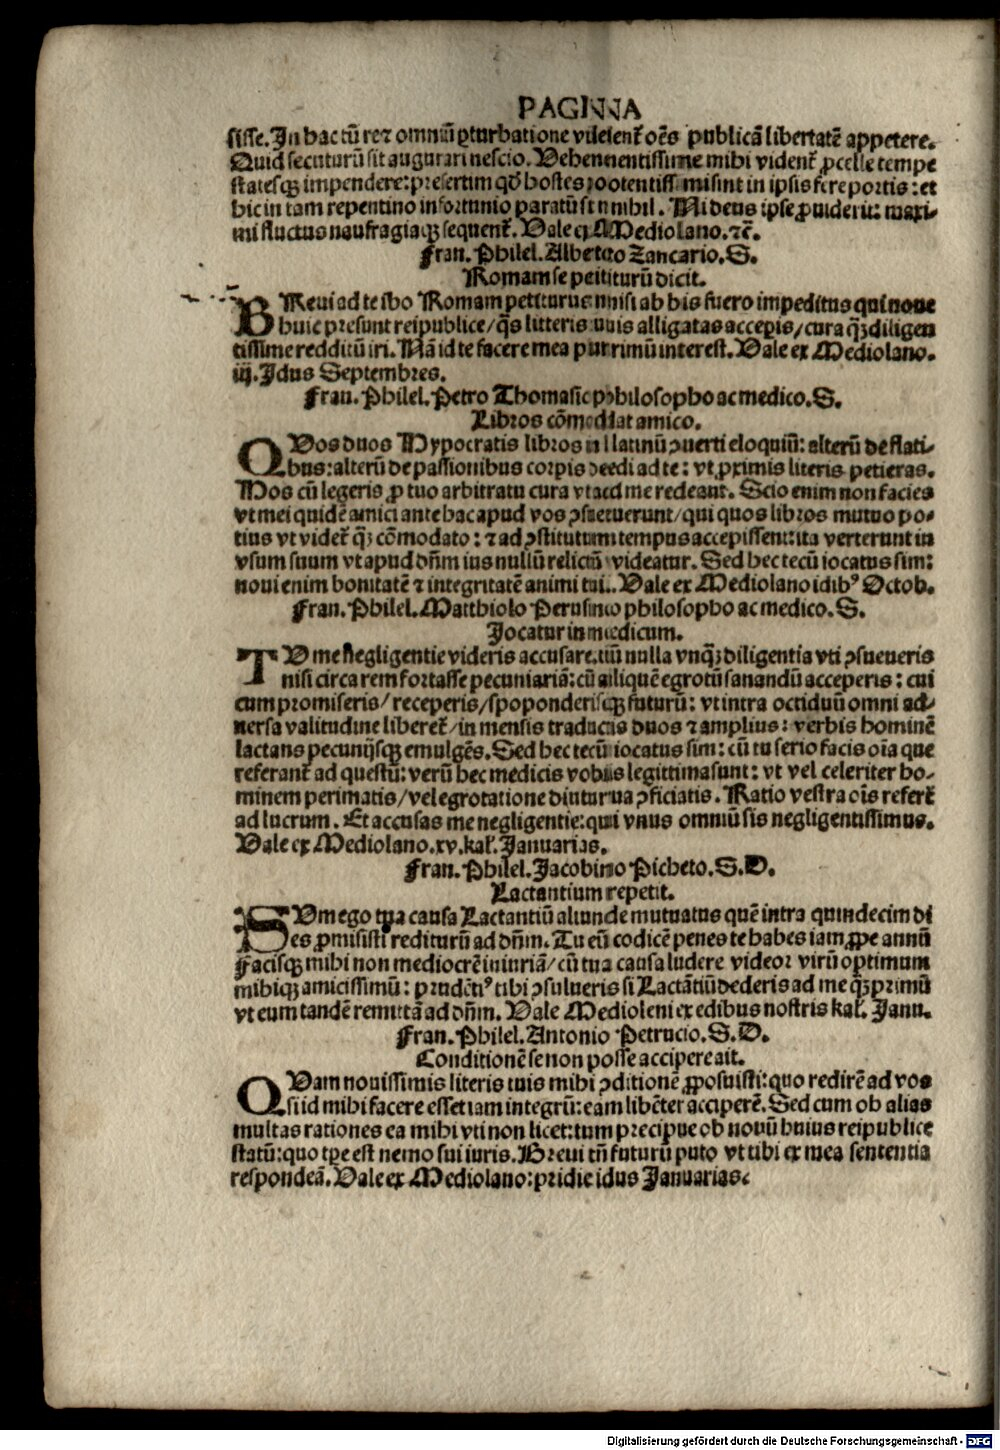 PAGINNA
sisse. In hac tũ reꝝ omniũ ꝑturbatione videient᷑ oẽs publicã libertatẽ appetere.
Quid secuturũ sit augurari nescio. Vehementissime mihi vident᷑ ꝓcelle tempe
statesqꝫ impendere: presertim qđ hostes potentissimi sint in ipsis fere portis: et
hic in tam repentino infortunio paratũ sit nihil. Ni deus ipse ꝓuiderit: maxi-
mi fluctus naufragiaqꝫ sequent᷑. Vale ex Mediolano. ⁊c̃.
Fran. Philel. Alberto Zancario. S.
Romam se petiturũ dicit.
BReui ad te ibo Romam petiturus nnisi ab his fuero impeditus qui noue
huic presunt reipublice/ q̃s litteris tuis alligatas accepis/ cura qꝫ diligen
tissime redditũ iri. Nã id te facere mea plurimũ interest. Vale ex Mediolano.
iij. Idus Septembres.
Fran. Philel. Petro Thomasic philosopho ac medico. S.
Libros cõmodat amico.
QVos duos Hypocratis libros in latinũ ꝯuerti eloquiũ: alterũ de flati-
bus: alterũ de passionibus corpis dedi ad te: vt ꝓximis literis petieras.
Hos cũ legeris ꝓ tuo arbitratu cura vt ad me redeant. Scio enim non facies
vt mei quidẽ amici ante hac apud vos ꝯsueuerunt/ qui quos libros mutuo po-
tius vt videt᷑ qꝫ cõmodato: ⁊ ad ꝯstitutum tempus accepissent: ita verterunt in
vsum suum vt apud dñm ius nullũ relictũ videatur. Sed hec tecũ iocatus sim:
noui enim bonitatẽ ⁊ integritatẽ animi tui. Vale ex Mediolano idibꝰ Octob.
Fran. Philel. Matthiolo Perusino philosopho ac medico. S.
Iocatur in medicum.
TV me negligentie videris accusare. tũ nulla vnqꝫ diligentia vti ꝯsueueris
nisi circa rem fortasse pecuniariã: cũ aliquẽ egrotũ sanandũ acceperis: cui
cum promiseris/ receperis/ spoponderisqꝫ futurũ: vt intra octiduũ omni ad-
uersa valitudine liberet᷑/ in mensis traducis duos ⁊ amplius: verbis hominẽ
lactans pecunijsqꝫ emulgẽs. Sed hec tecũ iocatus sim: cũ tu serio facis oĩa que
referant᷑ ad questũ: verũ hec medicis vobis legittima sunt: vt vel celeriter ho-
minem perimatis/ vel egrotatione diuturna ꝯficiatis. Ratio vestra oĩs refert᷑
ad lucrum. Et accusas me negligentie: qui vnus omniũ sis negligentissimus.
Vale ex Mediolano. xv. kal᷑. Ianuarias.
Fran. Philel. Iacobino Picheto. S. D.
Lactantium repetit.
SVm ego tua causa Lactantiũ aliunde mutuatus quẽ intra quindecim di
es ꝓmisisti rediturũ ad dñm. Tu eũ codicẽ penes te habes iam ꝓpe annũ
Facisqꝫ mihi non mediocrẽ iniuriã/ cũ tua causa ludere videor virũ optimum
mihiqꝫ amicissimũ: prudẽtiꝰ tibi ꝯsulueris si Lactãtiũ dederis ad me qꝫ primũ
vt eum tandẽ remittã ad dñm. Vale Medioleni ex edibus nostris kal᷑. Ianu.
Fran. Philel. Antonio Petrucio. S. D.
Conditionẽ se non posse accipere ait.
QVam nouissimis literis tuis mihi ꝯditionẽ ꝓposuisti: quo redirẽ ad vos
si id mihi facere esset iam integrũ: eam libẽter acciperẽ. Sed cum ob alias
multas rationes ea mihi vti non licet: tum precipue ob nouũ huius reipublice
statũ: quo tpe est nemo sui iuris. Breui tñ futurũ puto vt tibi ex mea sententia
respondeã. Vale ex Mediolano: pridie idus Ianuarias.
Digitalisierung gefördert durch die Deutsche Forschungsgemeinschaft - DFG